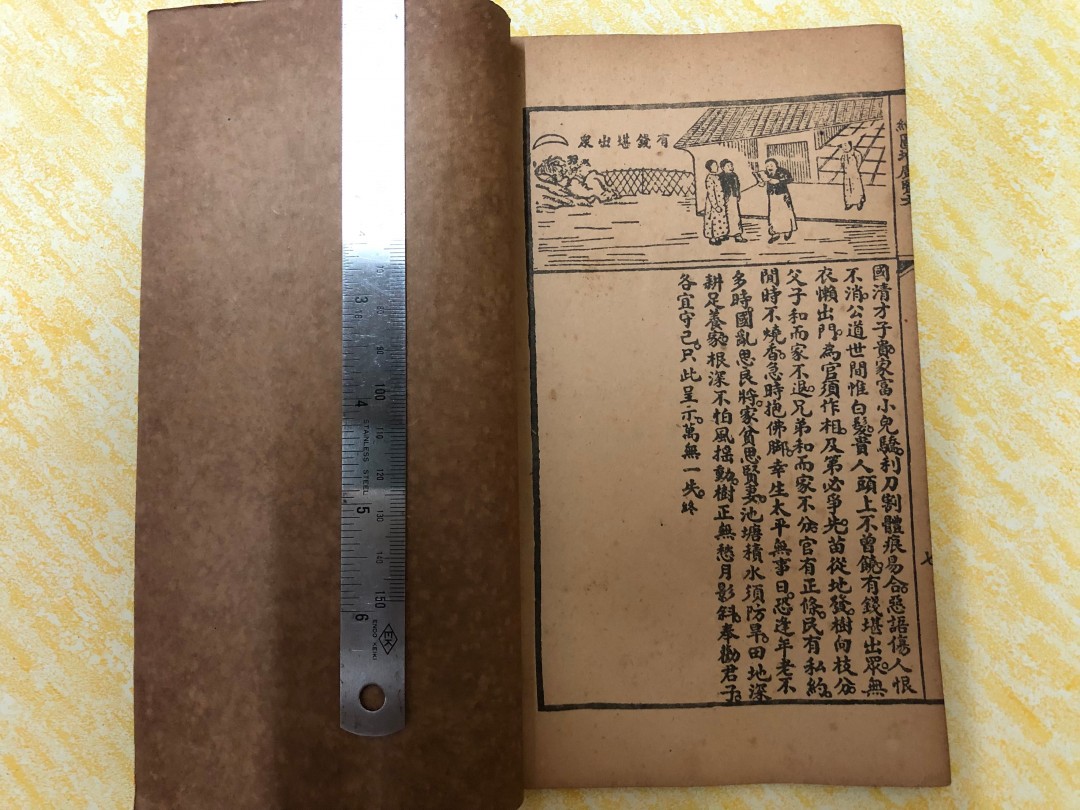 有錢堪出眾
國清才子貴。家富小兒驕。利刀割體痕易合。惡語傷人恨
不消。公道世間惟白髮。貴人頭上不曾饒。有錢堪出眾。無
衣懶出門。為官須作相。及第必爭先。苗從地發。樹向枝分。
父子和而家不退。兄弟和而家不分。官有正條。民有私約。
閒時不燒香。急時抱佛脚。幸生太平無事日。恐逢年老不
多時。國亂思良將。家貧思賢妻。池塘積水須防旱。田地深
耕足養家。根深不怕風搖動。樹正無愁月影斜。奉勸君子。
各宜守己。只此呈示。萬無一失。終
七
3
4
5
6
70
80
90
100
110
120
130
140
150
STAINLESS STEEL
EK